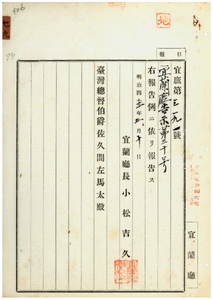 報
日
宜庶第三九一號
宜蘭廳告示第三十號
右報告例ニ依リ報告ス
明治四
十
日
宜蘭廳長小松吉久
臺灣總督伯爵佐久間左馬太殿
宜蘭廳